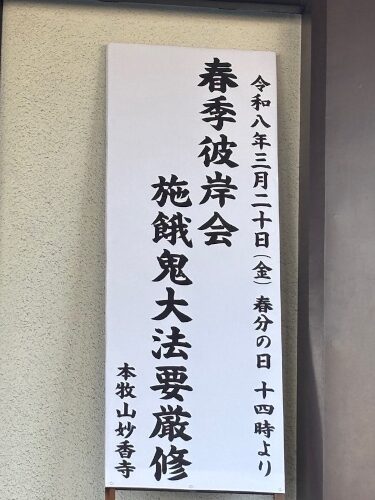 令和八年三月二十日(金)春分の日 十四時より
春季彼岸会
施餓鬼大法要厳修
本牧山妙香寺